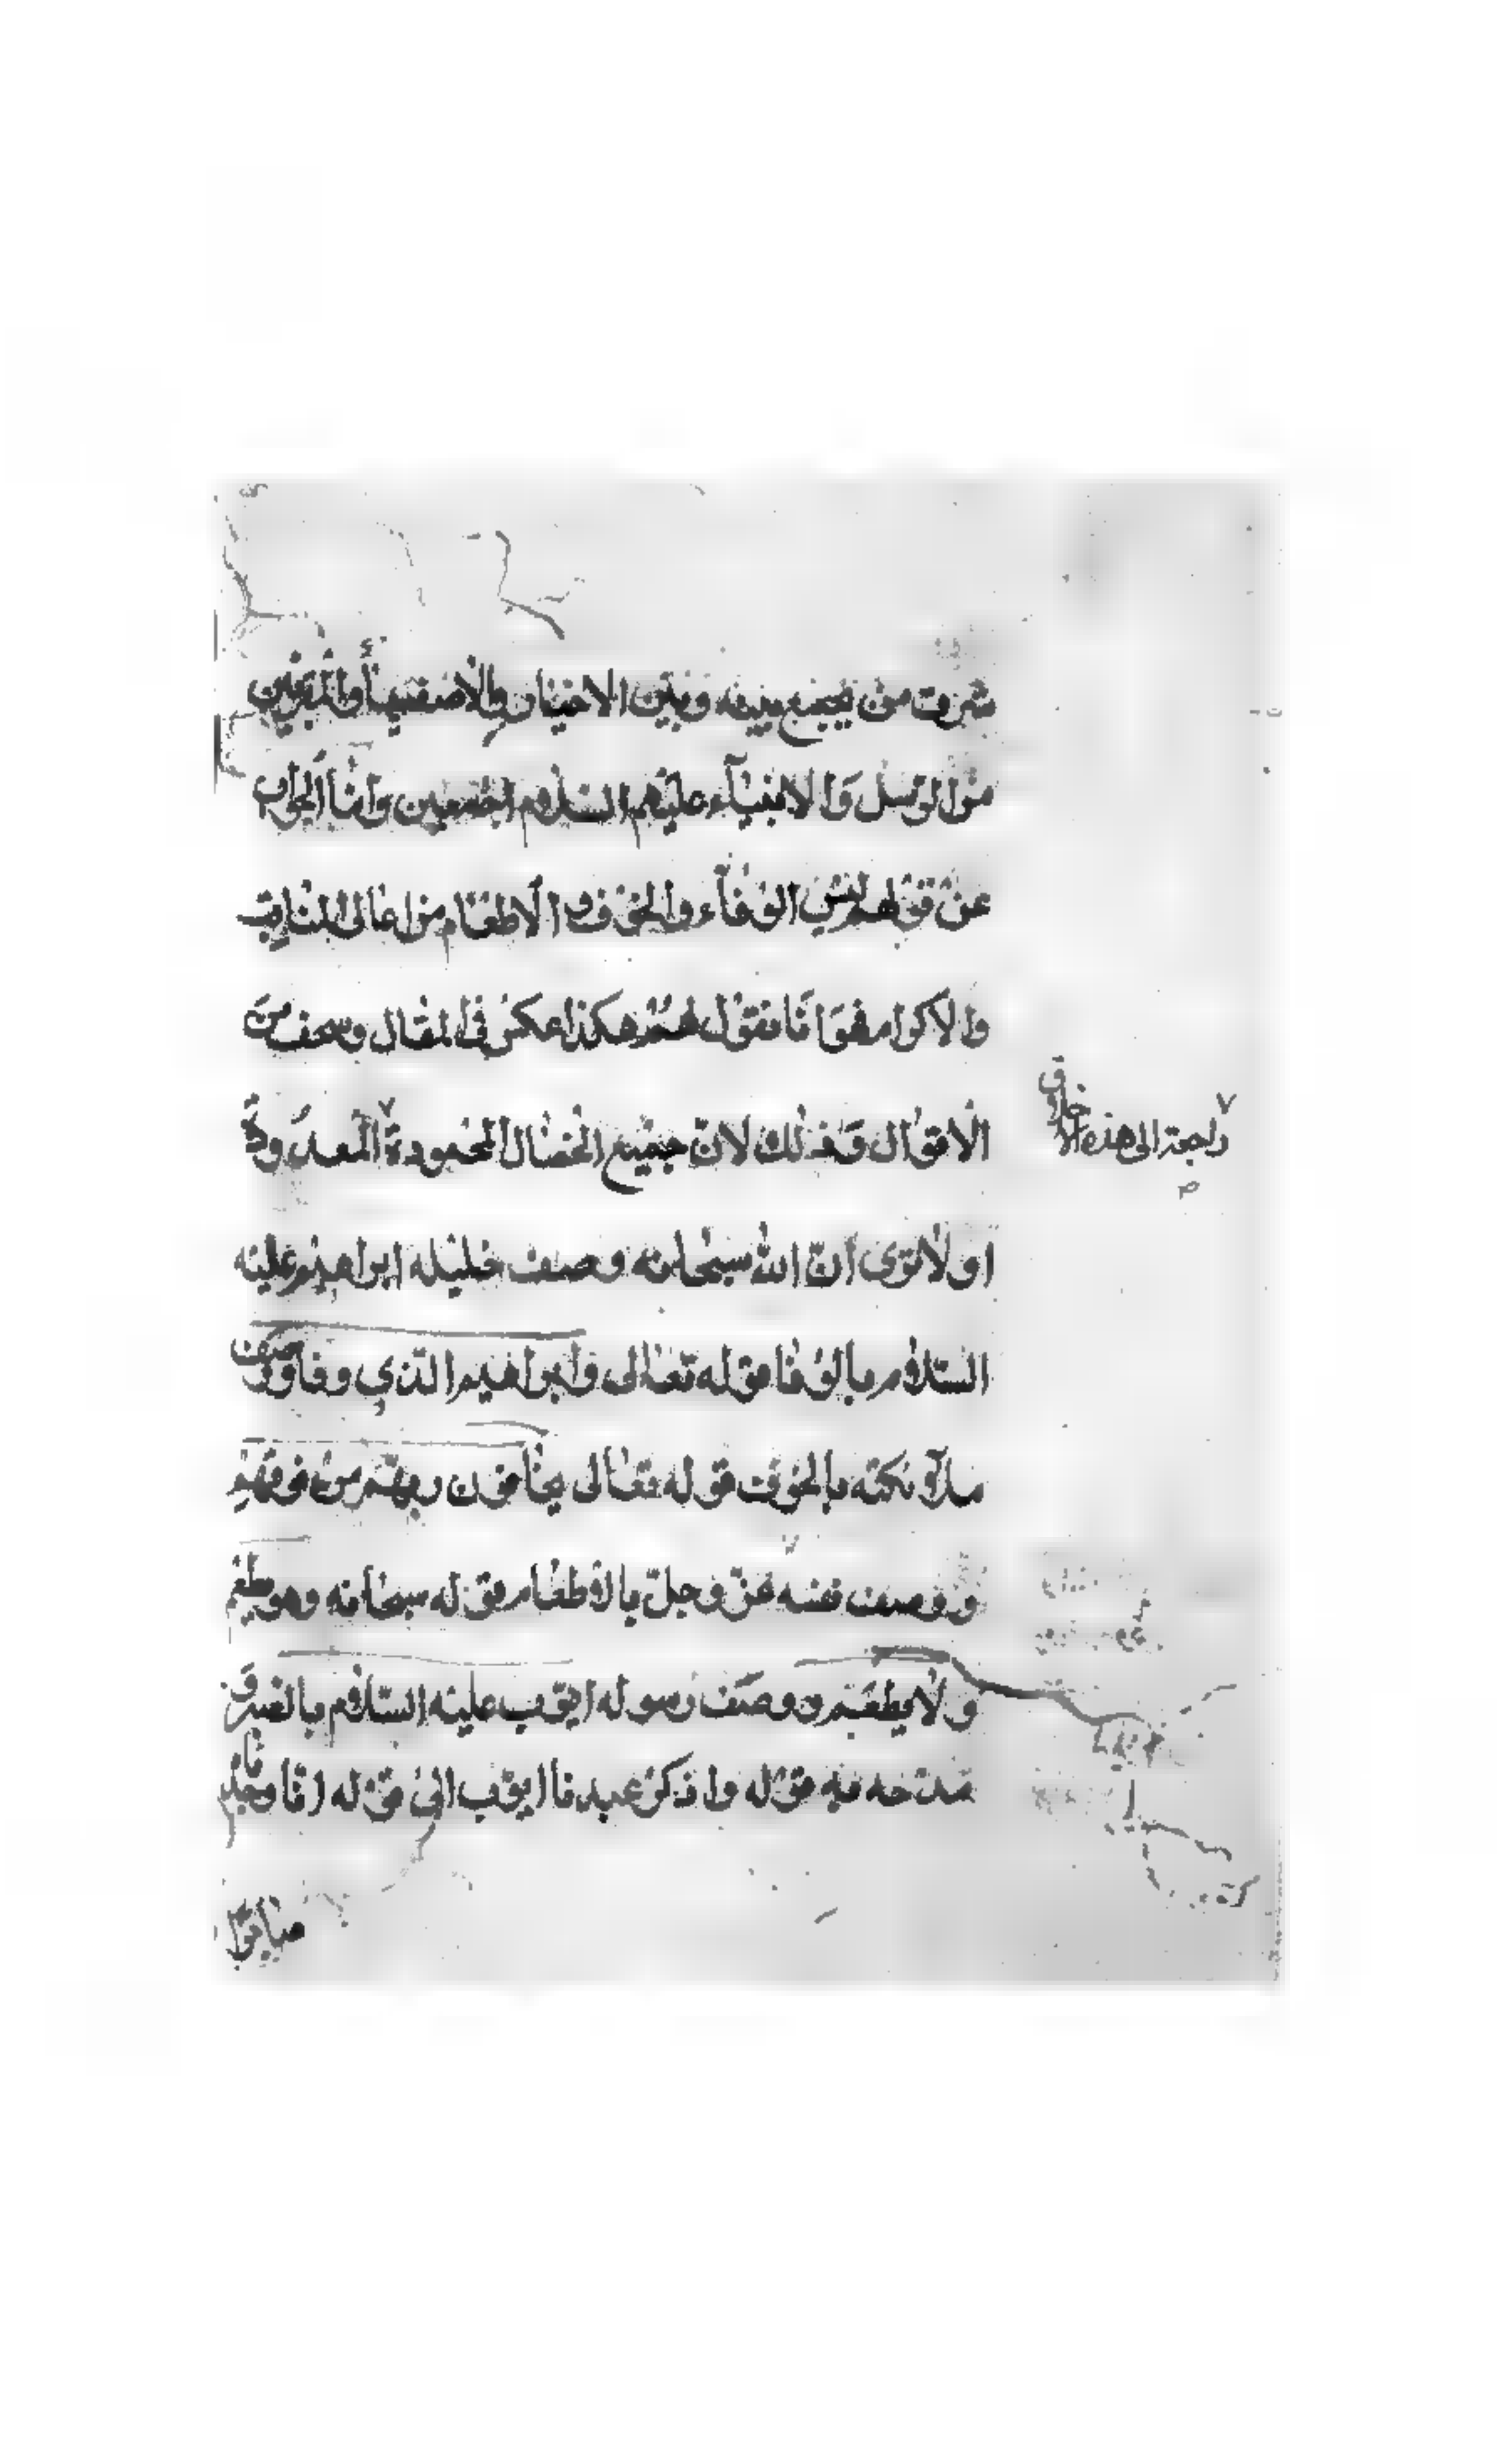 شرف من يجمع بينه وبين الاخيار والاصفياء والمقربين
من الرسل والانبياء عليهم السلام اجمعين واما الجواب
عن قولهم ليس الوفاء والخوف والاطعام من اعالى المناقب
والاكرام فهو انا نقول لهم هكذا عكس فى المقال وسخف من
الاقوال وذلك لان جميع الخصال المحمودة المعدودة
راجعة الى هذه الاخلاق
اولا ترى ان الله سبحانه وصف خليله ابراهيم عليه
السلام بالوفا قوله تعالى وابراهيم الذي وفا ووصف
ملآئكته بالخوف قوله تعالى يخافون ربهم من فوقهم
ووصف نفسه عز وجل بالاطعام قوله سبحانه وهو يطعم
ولا يطعم ووصف رسوله ايوب عليه السلام بالصبر و
مدحه فيه قوله واذكر عبدنا ايوب الى قوله انا وجدناه
صابرا